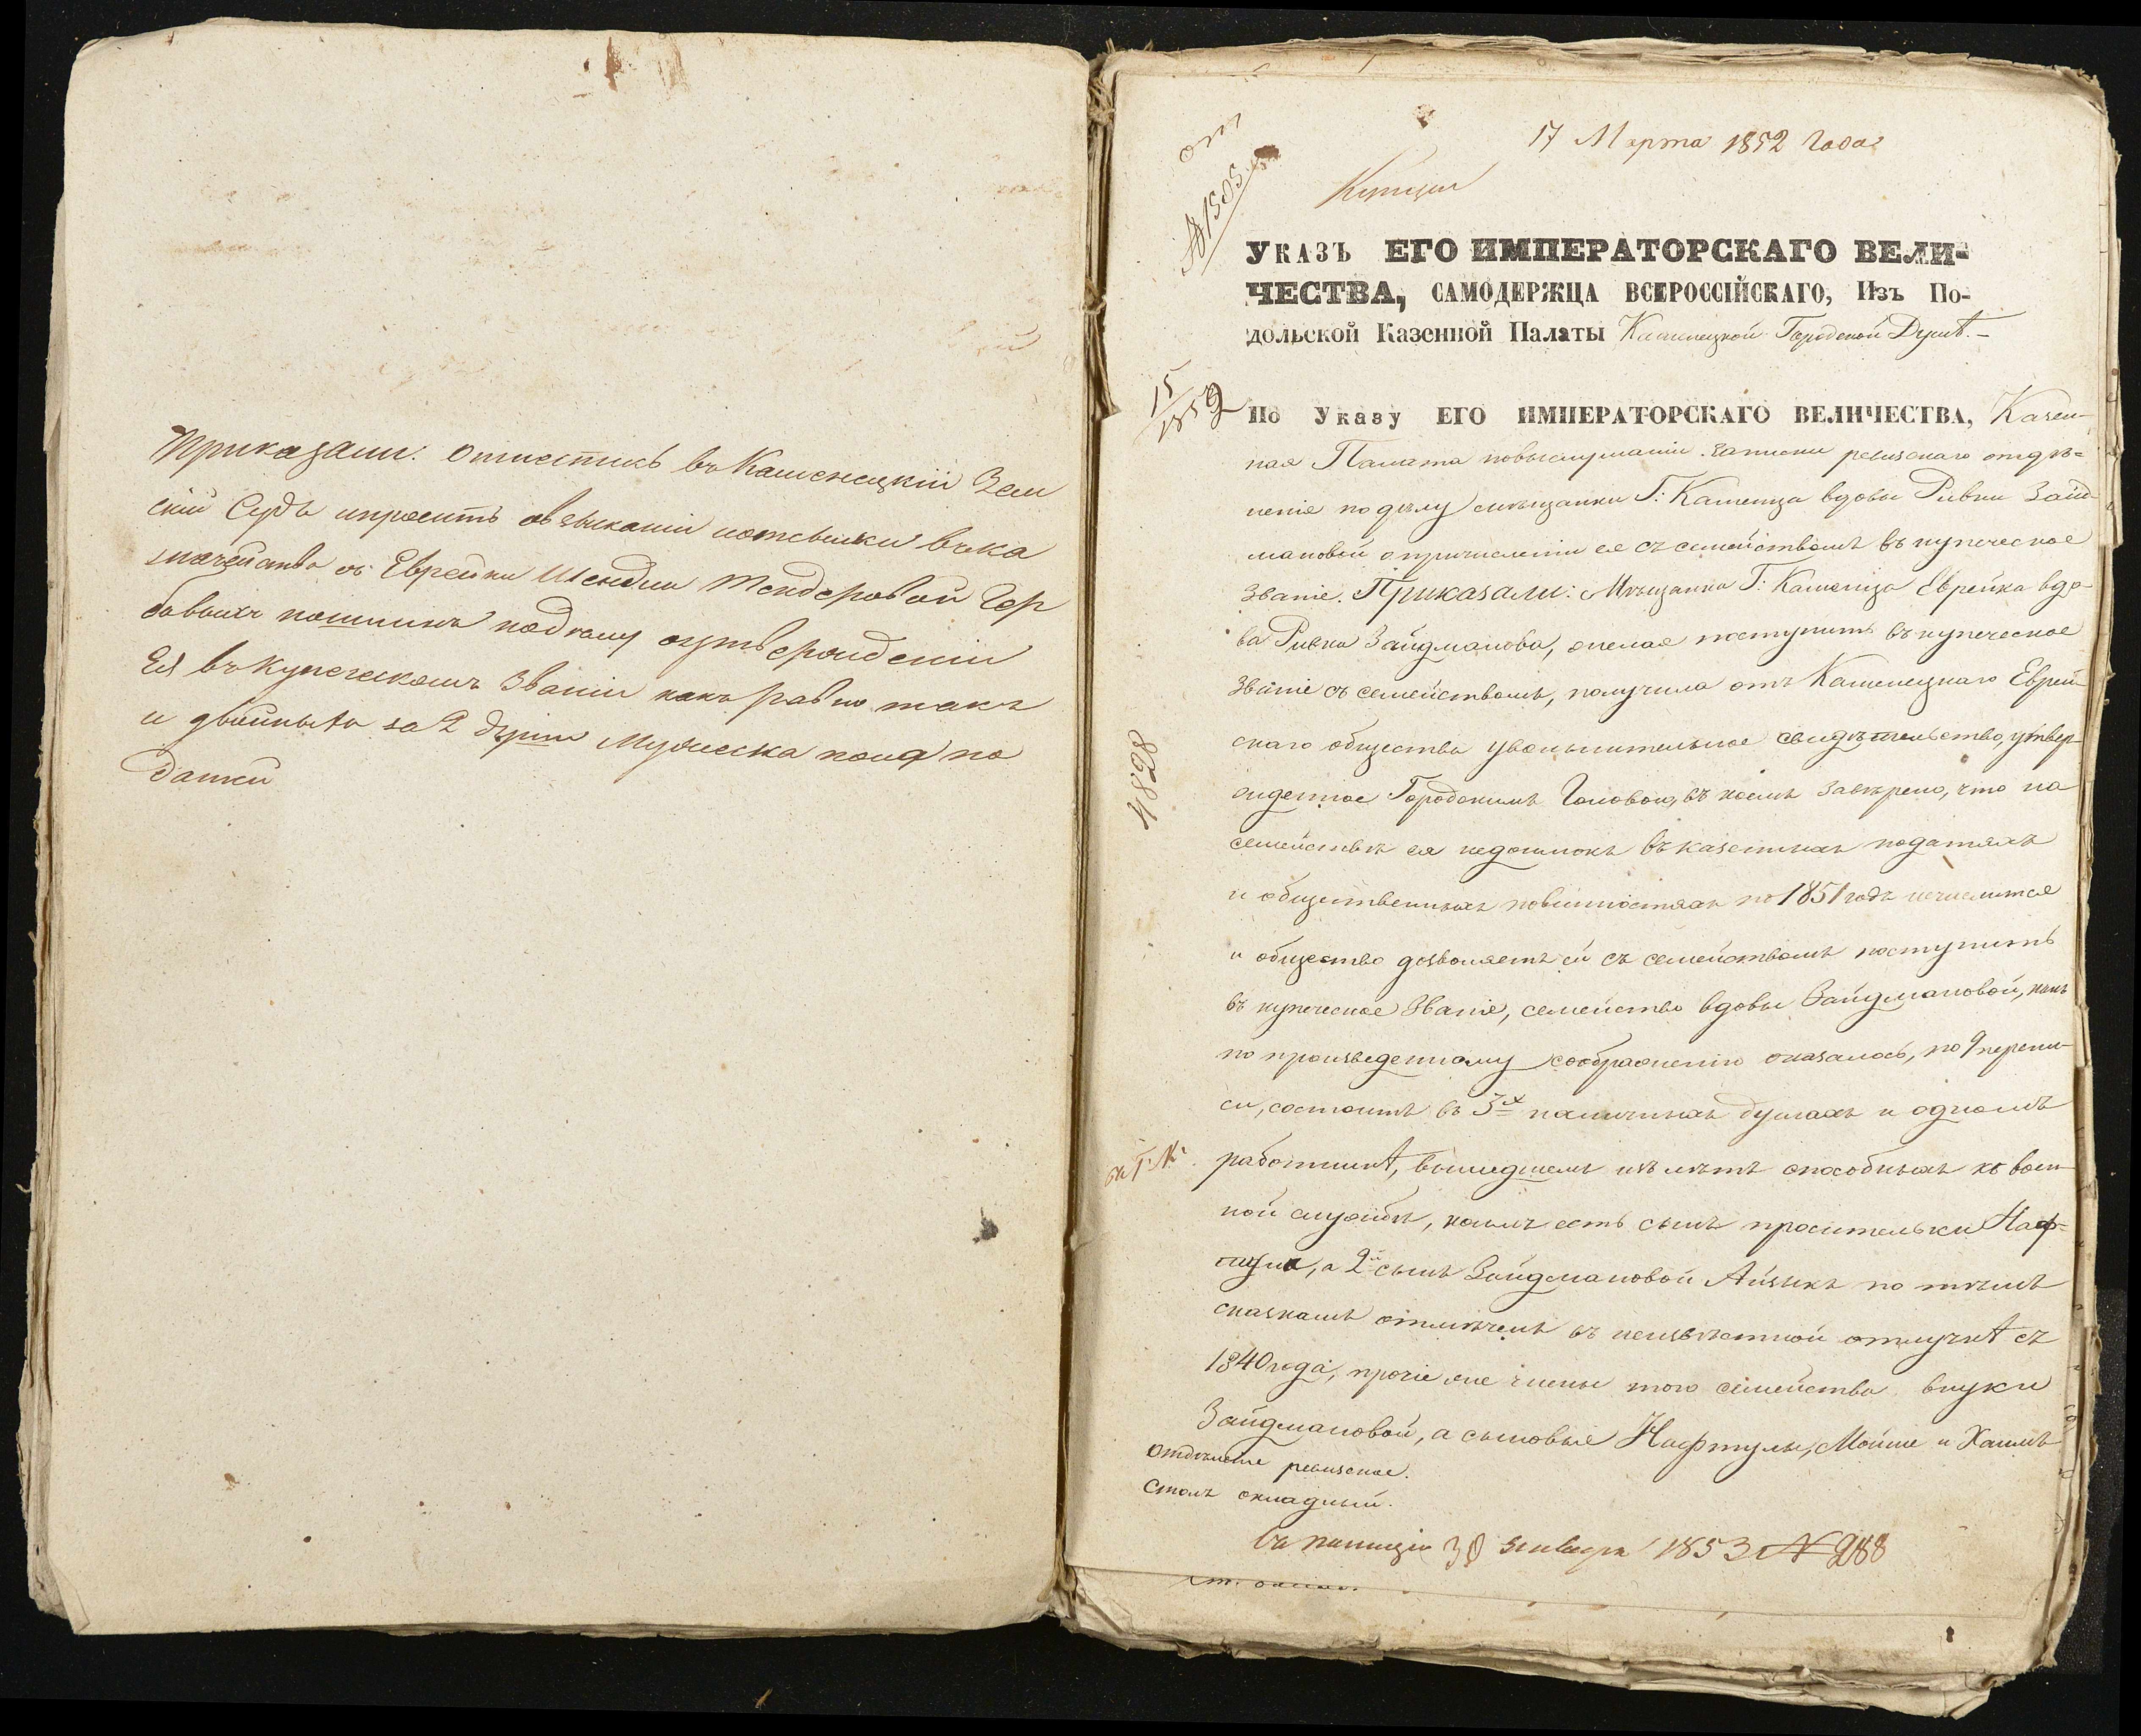 Приказали: отнестись въ Каменецкій Зем
скій Судъ и просить о взысканіи и отсылки въ ка
значейство съ Еврейки Шендли Тендеровой Гер
бовыхъ пошлинъ
Ея въ купеческомъ званіи какъ равно такъ
и двойныхъ за 2 души мужеска пола по
датей
17 Марта 1852 года
от
№ 1505
Копіи
УКАЗЪ ЕГО ИМПЕРАТОРСКАГО ВЕЛИ-
ЧЕСТВА, САМОДЕРЖЦА ВСЕРОССІЙСКАГО, Изъ По-
дольской Казенной Палаты Каменецкой Городской Думѣ.
15
1852
По Указу ЕГО ИМПЕРАТОРСКАГО ВЕЛИЧЕСТВА, Казен-
ная Палата по выслушаніи записки ревизскаго отдѣ=
ленія по дѣлу мѣщанки Г: Каменца вдовы Ривки Зайд-
мановой о причисленіи ея съ семействомъ въ купеческое
званіе. Приказали: Мѣщанка Г: Каменца Еврейка вдо-
ва Ривка Зайдманова, желая поступить въ купеческое
званіе съ семействомъ, получила отъ Каменецкаго Еврей-
скаго общества увольнительное свидѣтельство, утвер-
4828
жденное Городскимъ Головою, въ коемъ завѣрено, что на
семействѣ ея недоимокъ въ казенныхъ податяхъ
и общественныхъ повинностяхъ по 1851 годъ нечислится
и общество дозволяетъ ей съ семействомъ поступить
въ купеческое званіе, семейство вдовы Зайдмановой, какъ
по произведенному соображенію оказалось, по 9 перепи-
си, состоитъ въ 3х наличныхъ душахъ и одномъ
работникѣ, вышедшемъ изъ лѣтъ способныхъ къ воен-
ной службѣ, коимъ есть сынъ просительки Наф-
тула, а 2й сынъ Зайдмановой Айзыкъ по тѣмъ
сказкамъ отмѣченъ въ неизвѣстной отлучкѣ съ
1840 года, прочіе же члены того семейства внуки
Зайдмановой, а сыновья Нафтулы, Мойше и Хаимъ
Отдѣленіе ревизское.
Столъ окладный.
въ полицію 30 января 1853 № 288